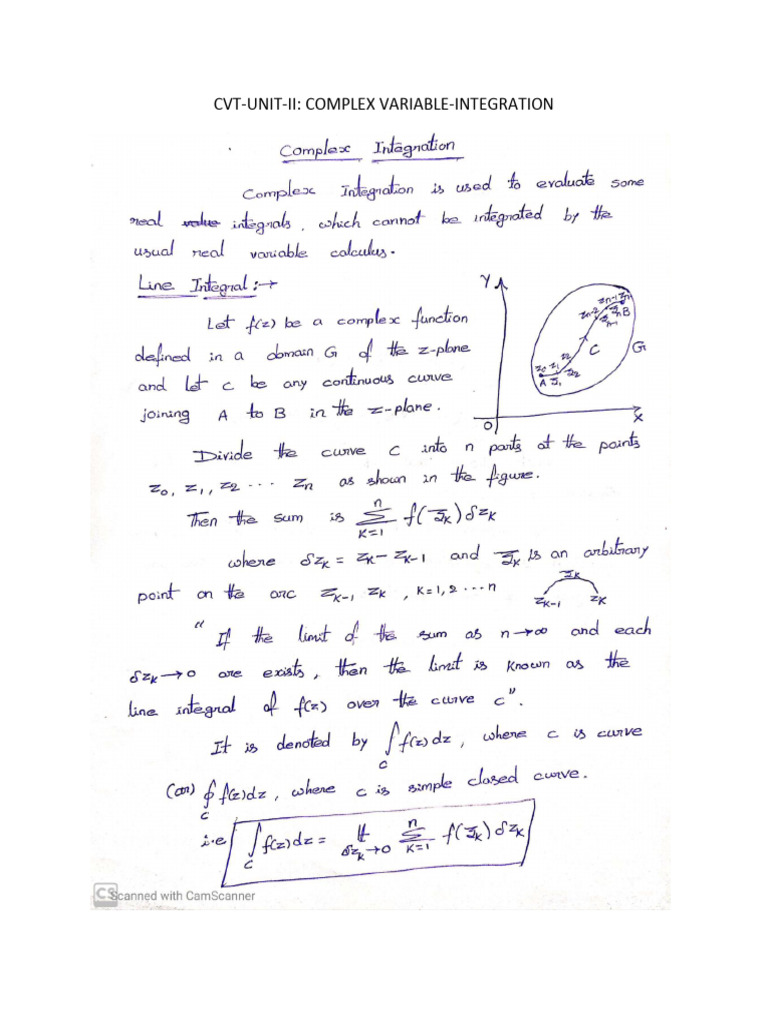 CVT-UNIT-II: COMPLEX VARIABLE-INTEGRATION
Complex Integration
Complex Integration is used to evaluate some
real value integrals, which cannot be integrated by the
usual real variable calculus.
Line Integral :→
Let f(z) be a complex function
defined in a domain G of the z-plane
and let c be any continuous curve
joining A to B in the z-plane.
Y
zn-2 zn-1 zn
ξn-1 ξn B
C
G
z0 z1 z2
A ξ1 ξ2
O
X
Divide the curve C into n parts at the points
z0, z1, z2 ... zn as shown in the figure.
Then the sum is n∑k=1 f(ξk) δzk
where δzk = zk - zk-1 and ξk is an arbitrary
point on the arc zk-1 zk, k=1,2...n
ξk
zk-1 zk
"If the limit of the sum as n→∞ and each
δzk→0 are exists, then the limit is known as the
line integral of f(z) over the curve c".
It is denoted by ∫c f(z)dz, where c is curve
(or) ∮c f(z)dz, where c is simple closed curve.
i.e ∫c f(z)dz = lt δzk→0 n∑k=1 f(ξk) δzk
CS Scanned with CamScanner